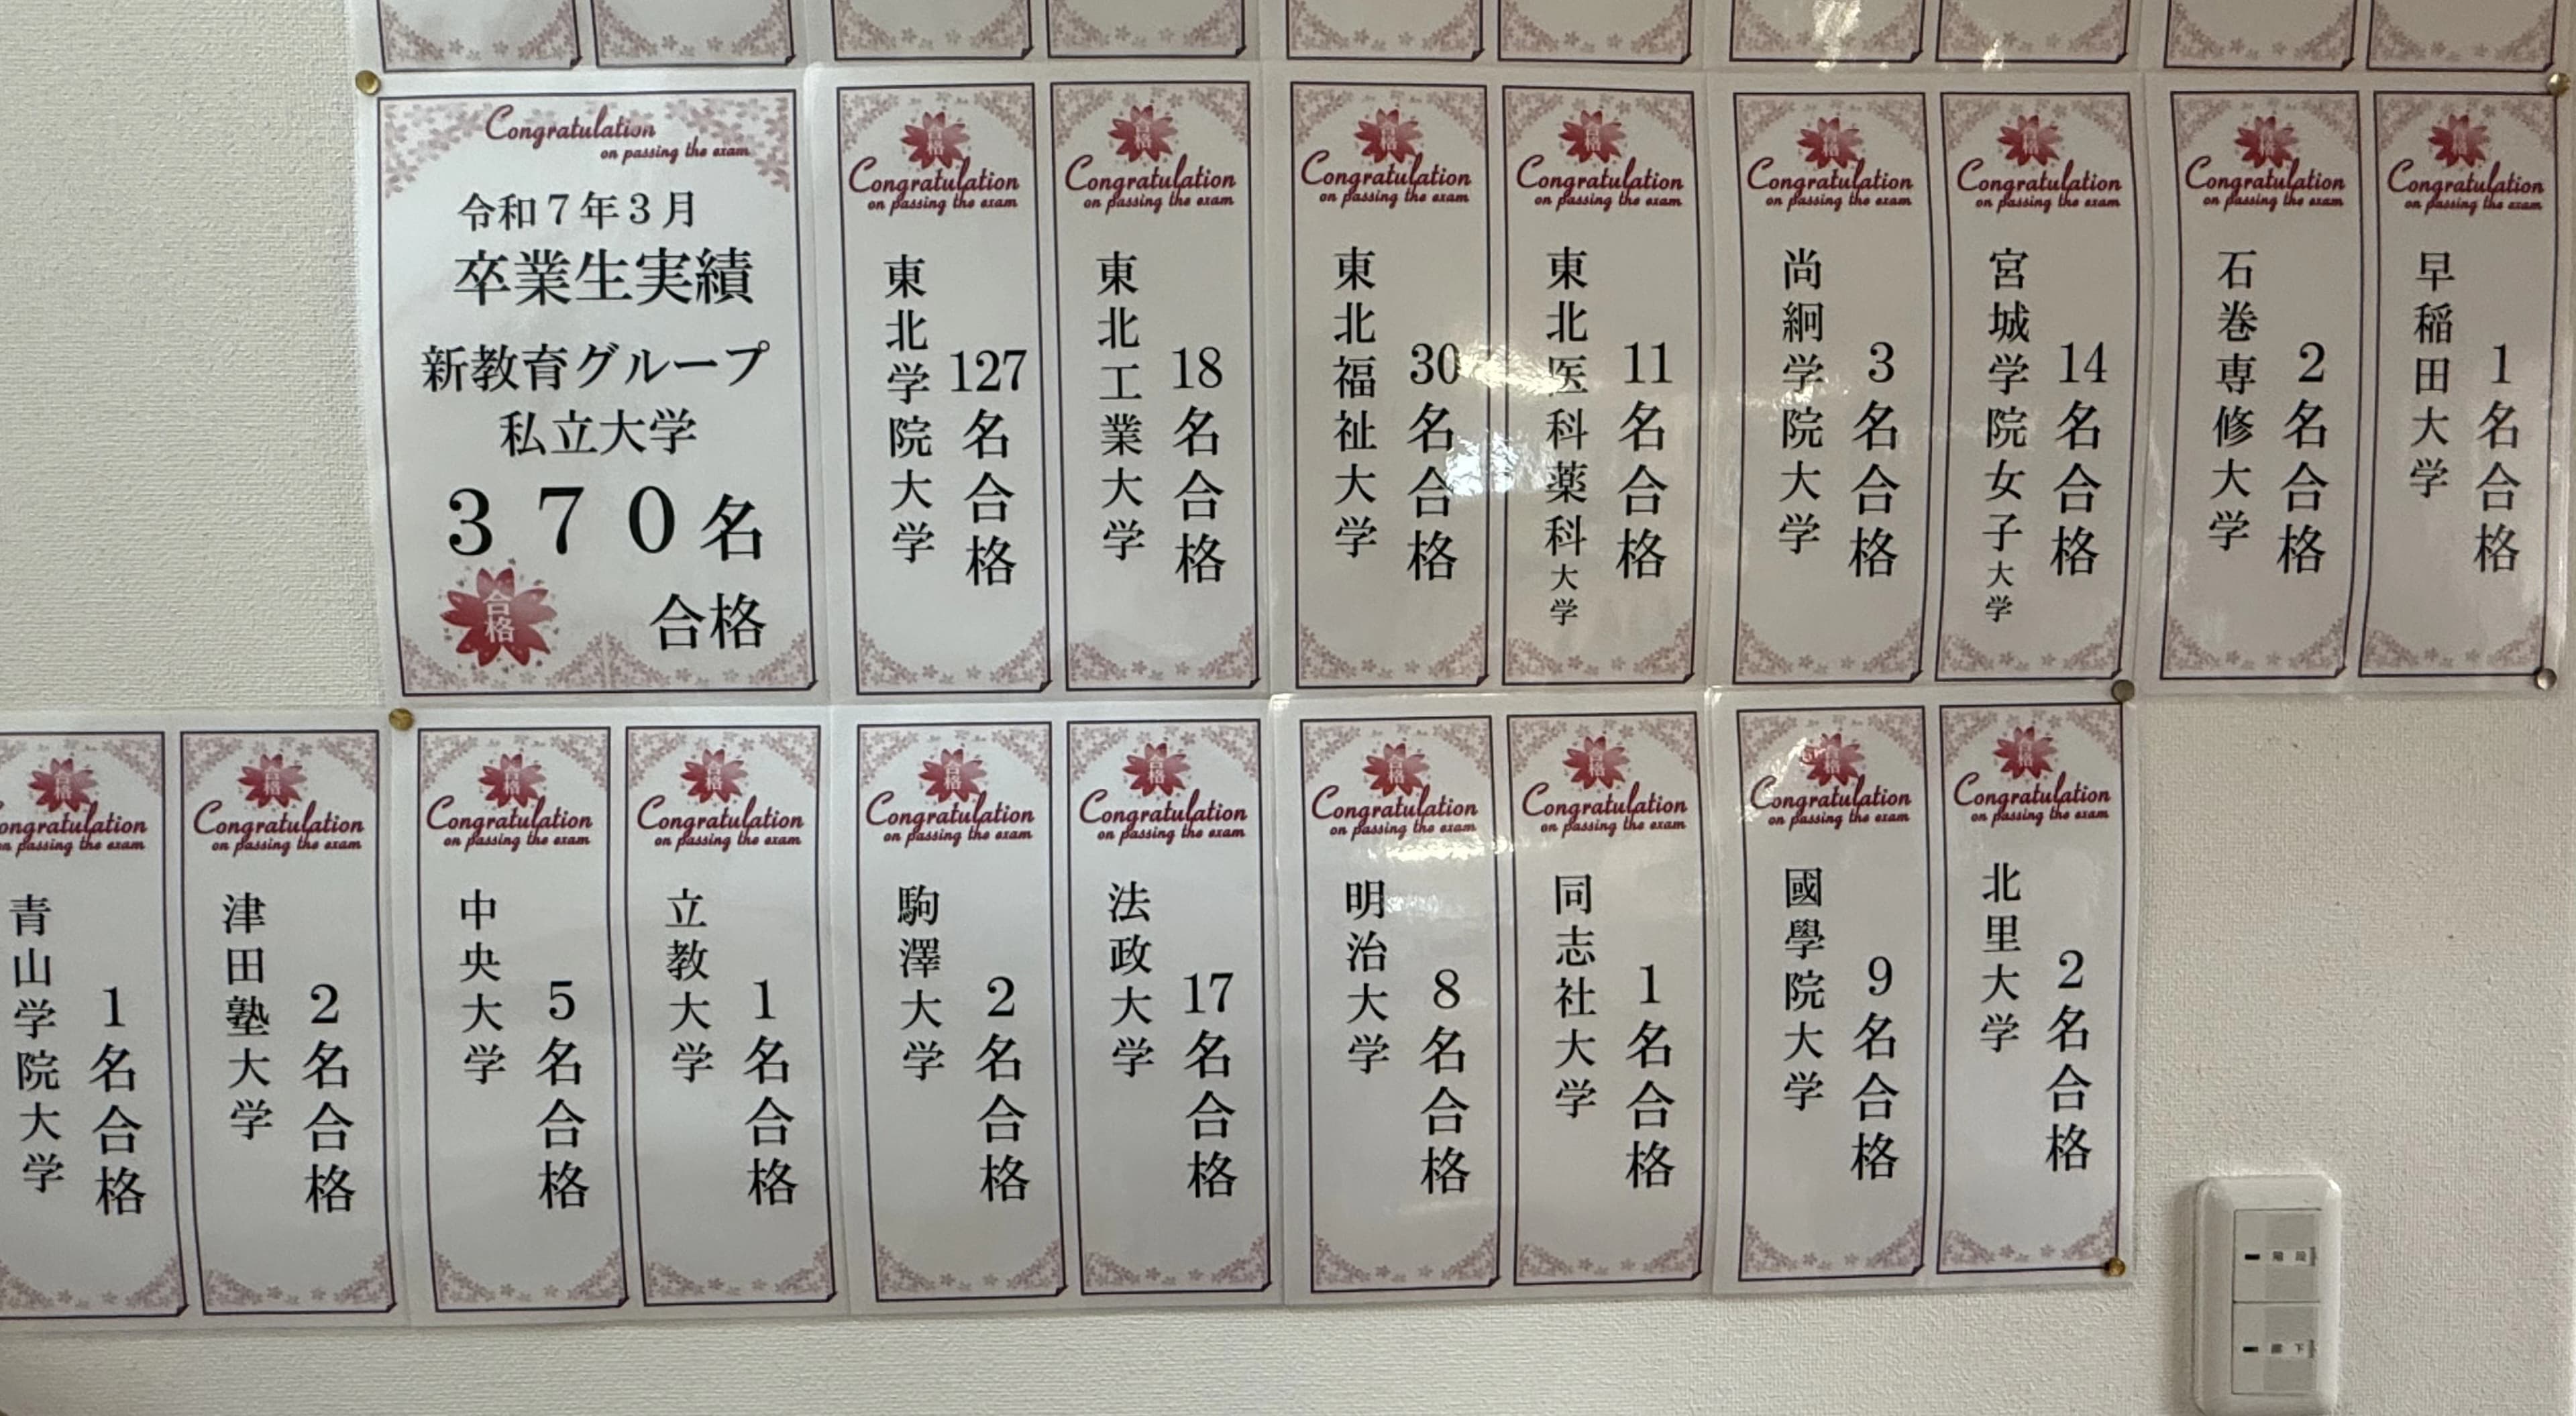 Congratulation
on passing the exam
令和7年3月
卒業生実績
新教育グループ
私立大学
370名
合格
合格
合格
Congratulation
on passing the exam
東北学院大学
127名合格
合格
Congratulation
on passing the exam
東北工業大学
18名合格
合格
Congratulation
on passing the exam
東北福祉大学
30名合格
合格
Congratulation
on passing the exam
東北医科薬科大学
11名合格
合格
Congratulation
on passing the exam
尚絅学院大学
3名合格
合格
Congratulation
on passing the exam
宮城学院女子大学
14名合格
合格
Congratulation
on passing the exam
石巻専修大学
2名合格
合格
Congratulation
on passing the exam
早稲田大学
1名合格
合格
ongratulation
n passing the exam
青山学院大学
1名合格
合格
Congratulation
on passing the exam
津田塾大学
2名合格
合格
Congratulation
on passing the exam
中央大学
5名合格
合格
Congratulation
on passing the exam
立教大学
1名合格
合格
Congratulation
on passing the exam
駒澤大学
2名合格
合格
Congratulation
on passing the exam
法政大学
17名合格
合格
Congratulation
on passing the exam
明治大学
8名合格
合格
Congratulation
on passing the exam
同志社大学
1名合格
合格
Congratulation
on passing the exam
國學院大学
9名合格
合格
Congratulation
on passing the exam
北里大学
2名合格
階段
廊下